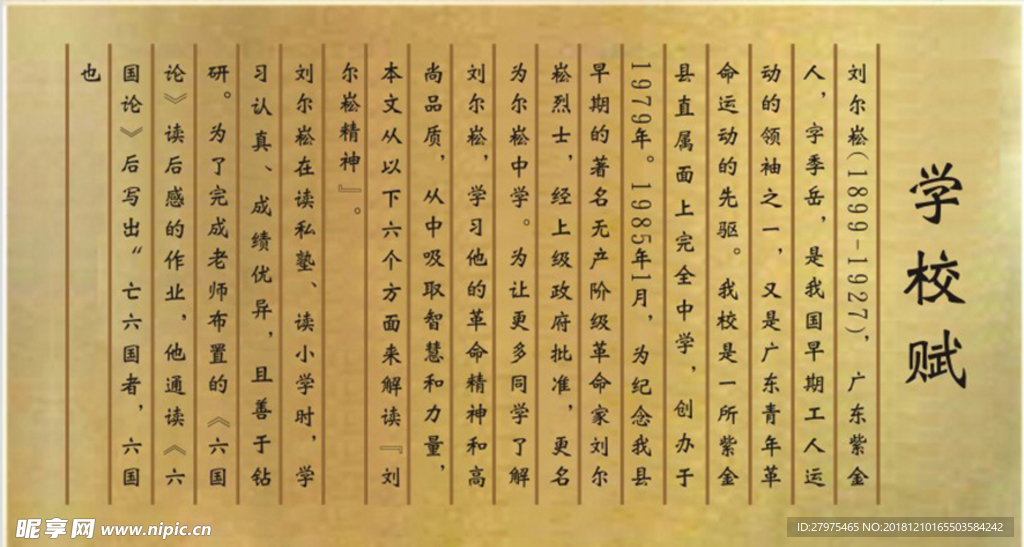 学校赋
刘尔崧(1899-1927)，广东紫金
人，字季岳，是我国早期工人运
动的领袖之一，又是广东青年革
命运动的先驱。我校是一所紫金
县直属面上完全中学，创办于
1979年。1985年1月，为纪念我县
早期的著名无产阶级革命家刘尔
崧烈士，经上级政府批准，更名
为尔崧中学。为让更多同学了解
刘尔崧，学习他的革命精神和高
尚品质，从中吸取智慧和力量，
本文从以下六个方面来解读『刘
尔崧精神』。
刘尔崧在读私塾、读小学时，学
习认真、成绩优异，且善于钻
研。为了完成老师布置的《六国
论》读后感的作业，他通读《六
国论》后写出“亡六国者，六国
也
昵享网 www.nipic.cn
ID:27975465 NO:20181210165503584242